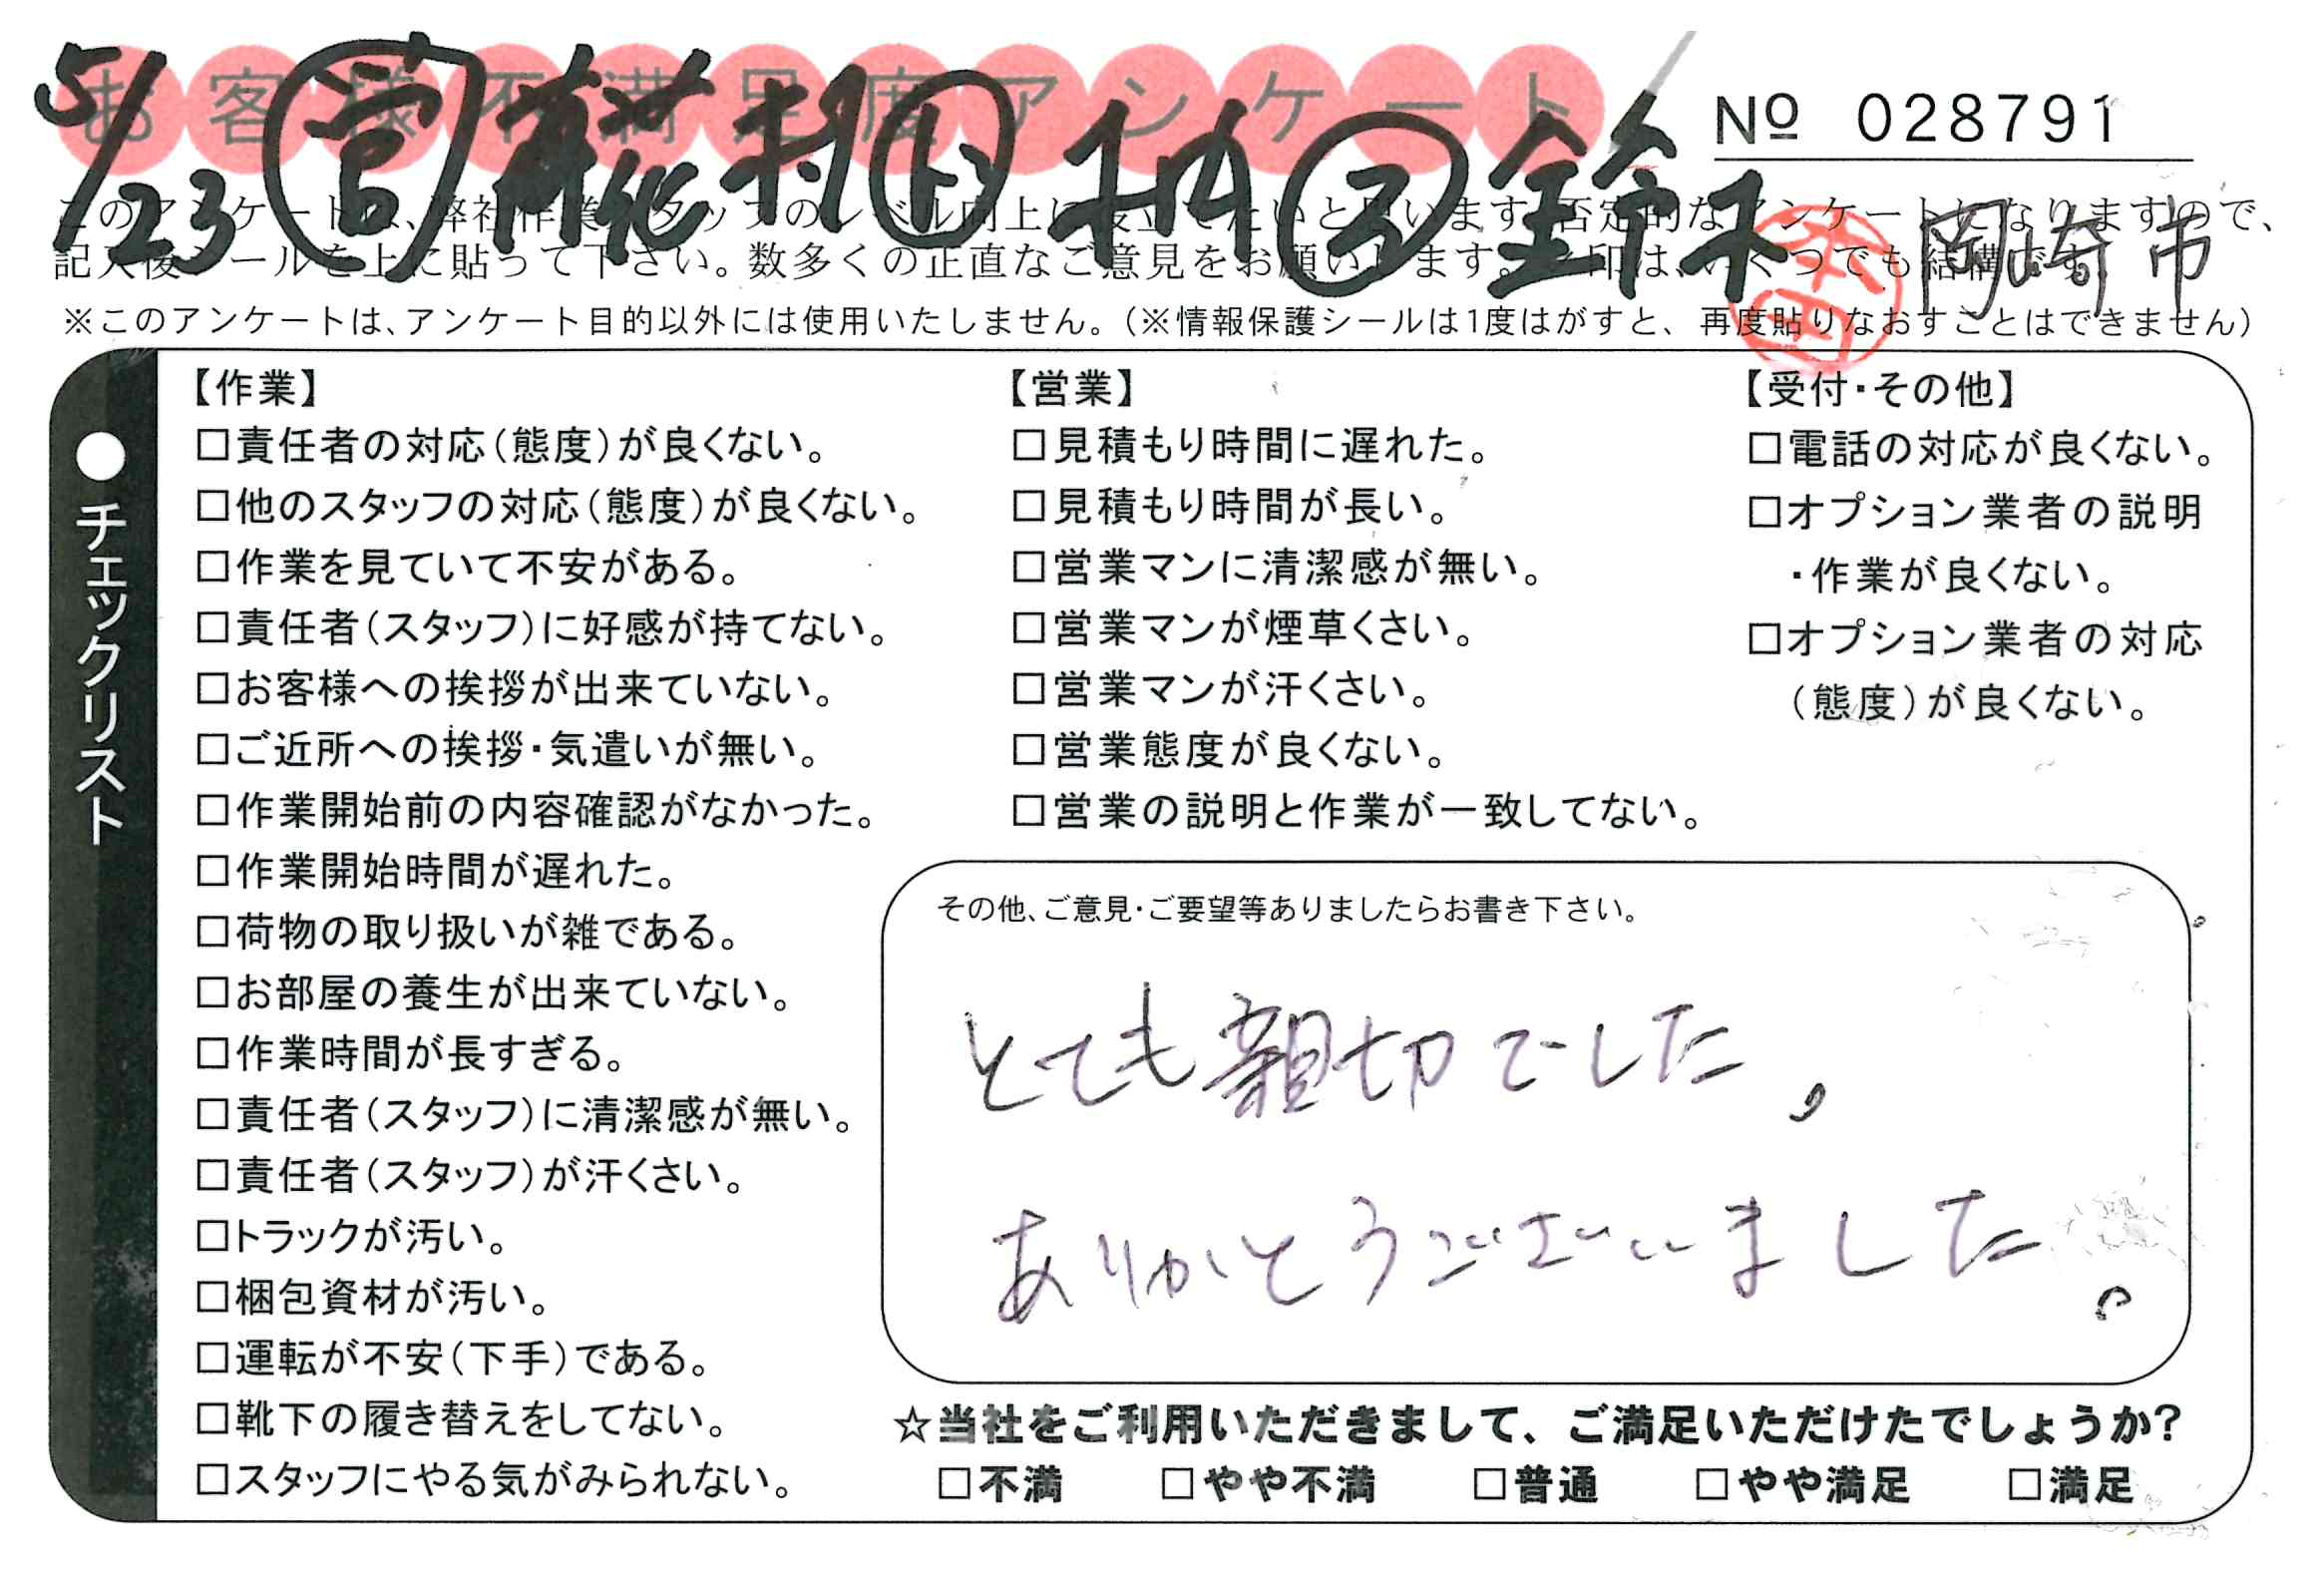 お客様不満足度アンケート
№ 028791
5/23 営 ト 鈴木
岡崎市
本田
このアンケートは、弊社作業スタッフのレベル向上に役立てたいと思います。否定的なアンケートとなりますので、
記入後シールを上に貼って下さい。数多くの正直なご意見をお願いします。 印は、いくつでも結構です。
※このアンケートは、アンケート目的以外には使用いたしません。(※情報保護シールは1度はがすと、再度貼りなおすことはできません)
●チェックリスト
【作業】
□責任者の対応(態度)が良くない。
□他のスタッフの対応(態度)が良くない。
□作業を見ていて不安がある。
□責任者(スタッフ)に好感が持てない。
□お客様への挨拶が出来ていない。
□ご近所への挨拶・気遣いが無い。
□作業開始前の内容確認がなかった。
□作業開始時間が遅れた。
□荷物の取り扱いが雑である。
□お部屋の養生が出来ていない。
□作業時間が長すぎる。
□責任者(スタッフ)に清潔感が無い。
□責任者(スタッフ)が汗くさい。
□トラックが汚い。
□梱包資材が汚い。
□運転が不安(下手)である。
□靴下の履き替えをしてない。
□スタッフにやる気がみられない。
【営業】
□見積もり時間に遅れた。
□見積もり時間が長い。
□営業マンに清潔感が無い。
□営業マンが煙草くさい。
□営業マンが汗くさい。
□営業態度が良くない。
□営業の説明と作業が一致してない。
【受付・その他】
□電話の対応が良くない。
□オプション業者の説明
・作業が良くない。
□オプション業者の対応
(態度)が良くない。
その他、ご意見・ご要望等ありましたらお書き下さい。
とても親切でした。
ありがとうございました。
☆当社をご利用いただきまして、ご満足いただけたでしょうか?
□不満 □やや不満 □普通 □やや満足 □満足